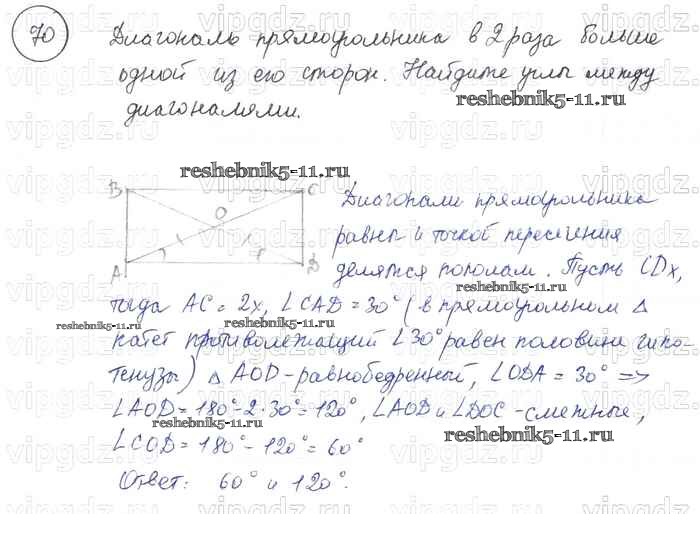 70
Диагональ прямоугольника в 2 раза больше
одной из его сторон. Найдите углы между
диагоналями.
reshebnik5-11.ru
reshebnik5-11.ru
B C
O
A D
Диагонали прямоугольника
равны и точкой пересечения
делятся пополам. Пусть CD x,
тогда AC = 2x, ∠CAD = 30° (в прямоугольном △
reshebnik5-11.ru
катет противолежащий ∠30° равен половине гипо-
reshebnik5-11.ru
тенузы) △ AOD - равнобедренный, ∠ODA = 30° =>
∠AOD = 180° - 2·30° = 120°, ∠AOD и ∠DOC - смежные,
reshebnik5-11.ru
∠COD = 180° - 120° = 60°
Ответ: 60° и 120°.